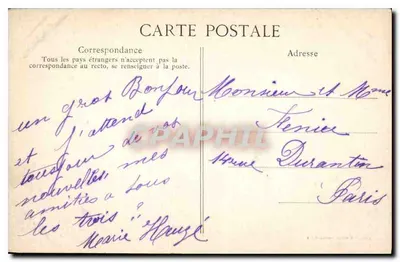 CARTE POSTALE
Correspondance
Tous les pays étrangers n'acceptent pas la
correspondance au recto, se renseigner à la poste.
un gros Bonjour
et j'attend
toujour de vos
nouvelles, mes
amitiés a tous
les trois
Marie Hauzé
Adresse
Monsieur et Mme
Fenice
14 rue Durantin
Paris
CARTAPHILIE